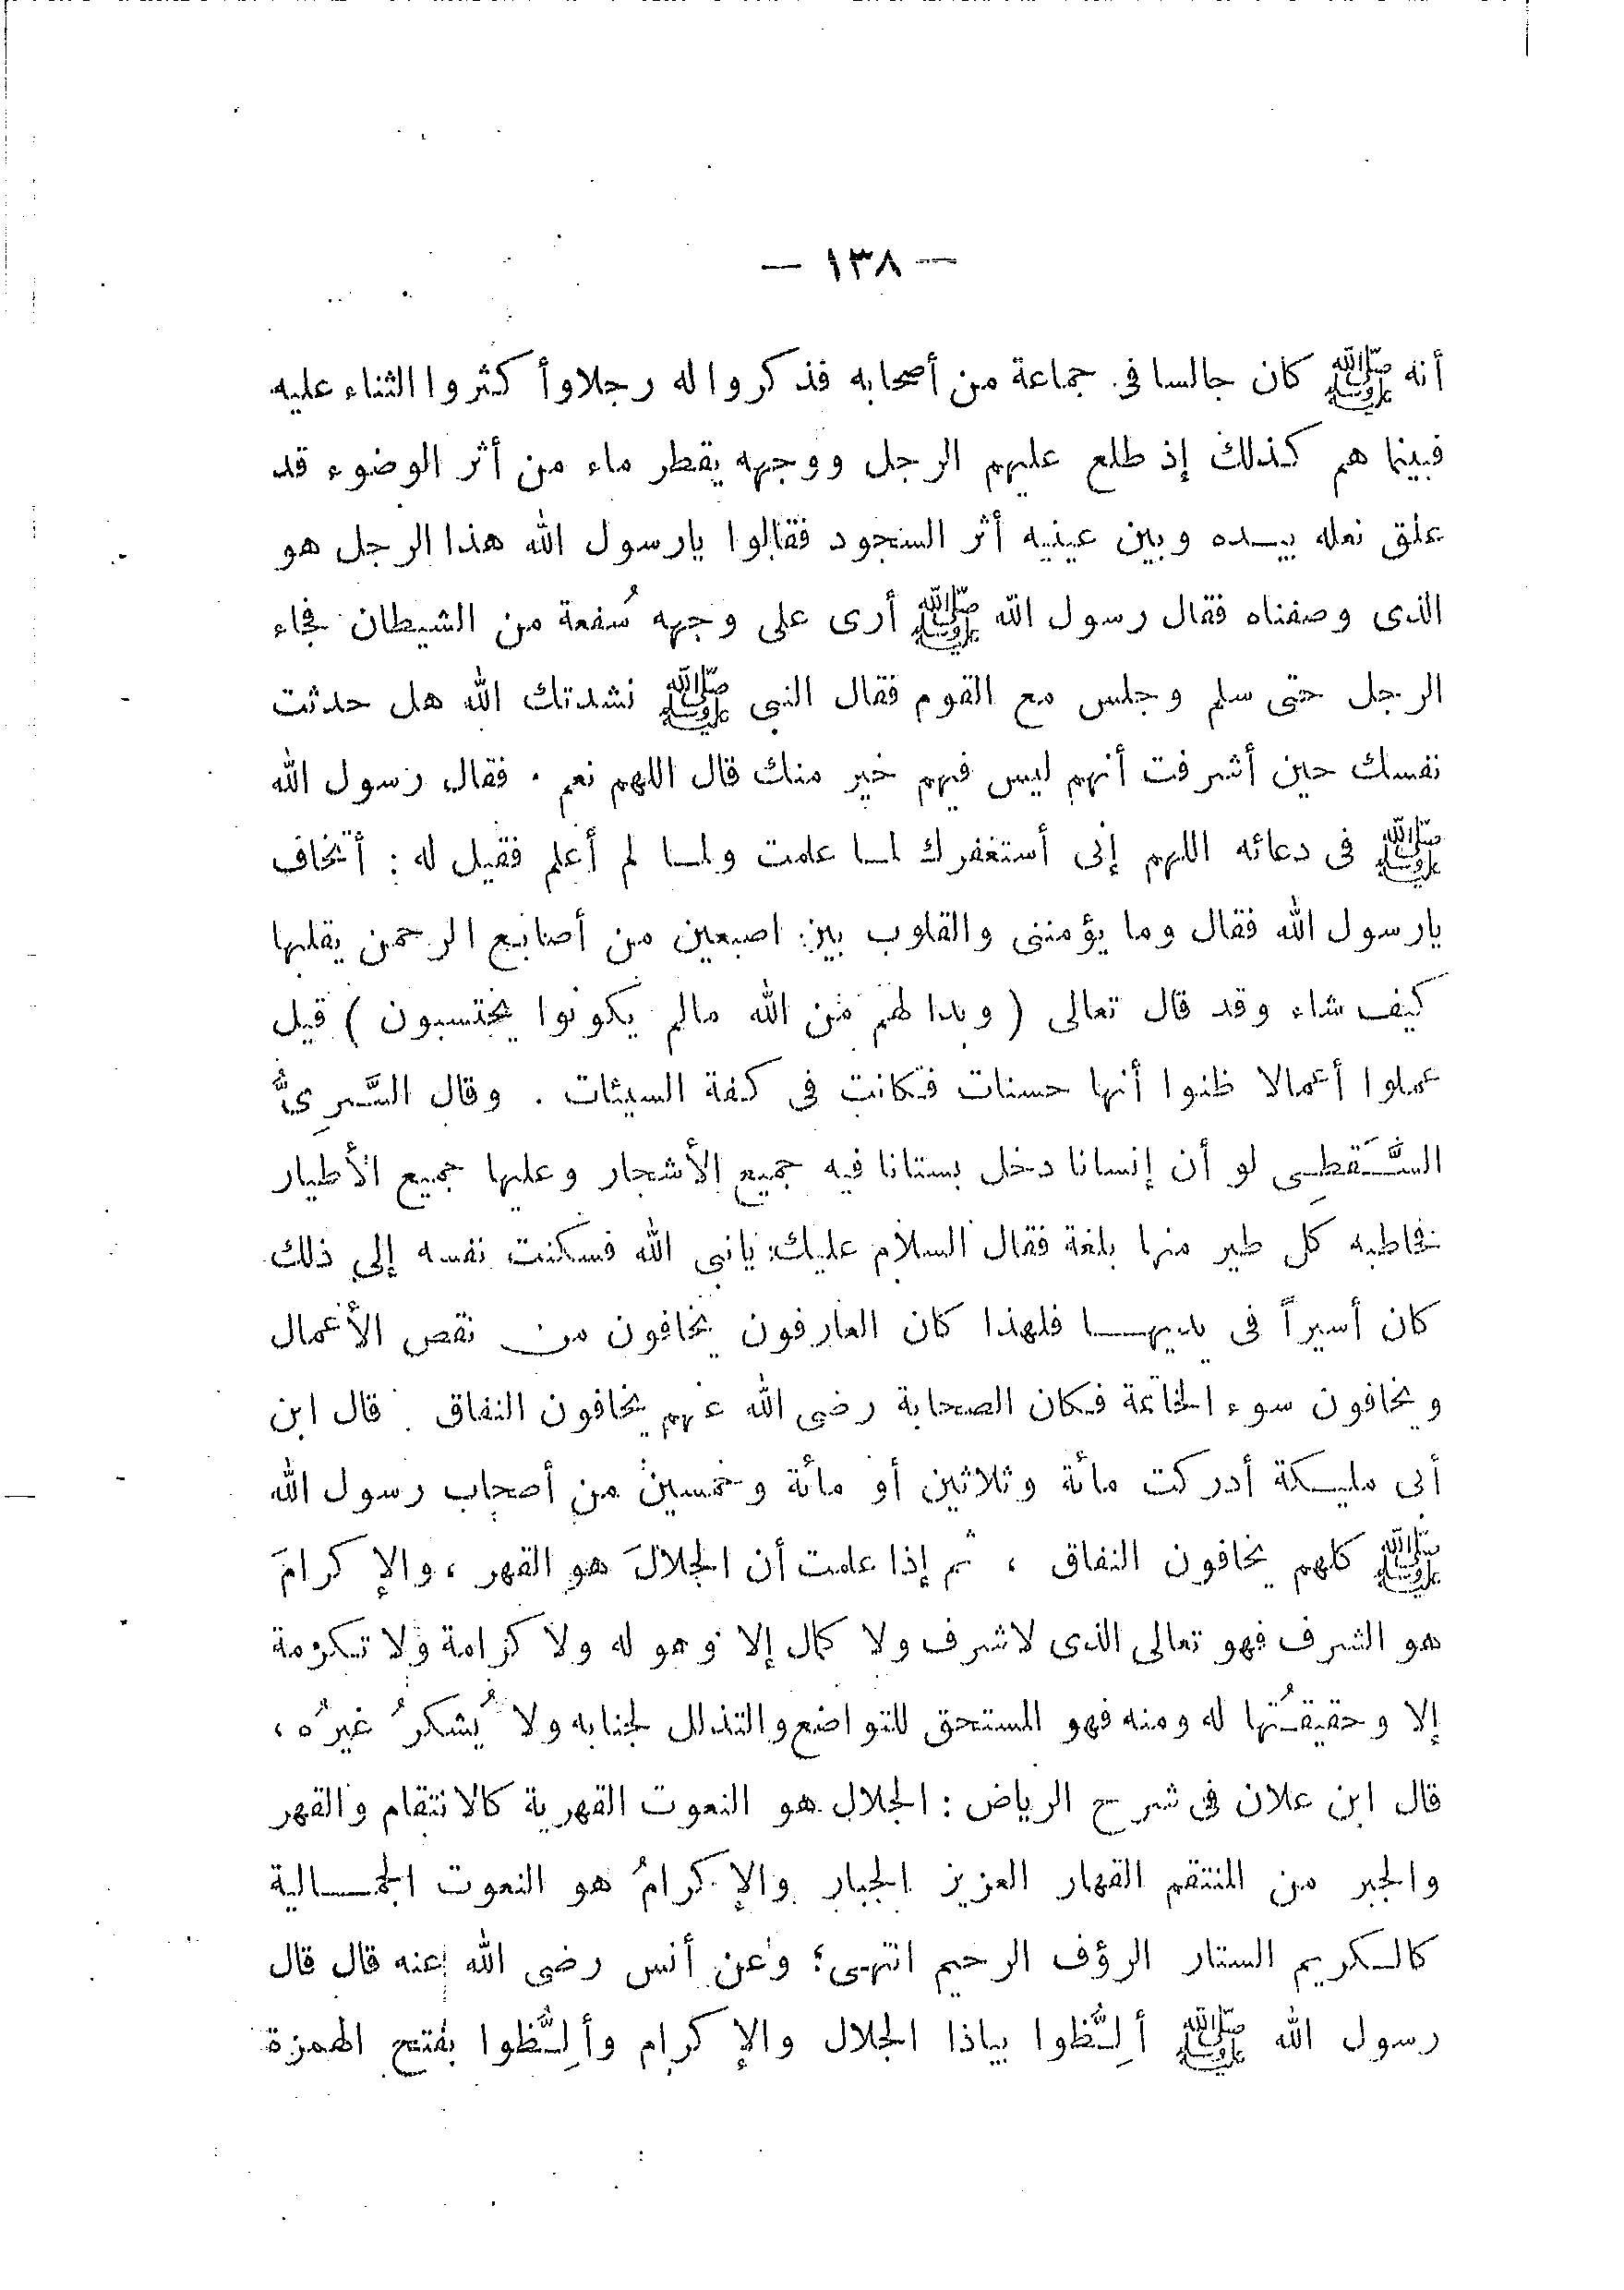 — ١٣٨ —
أنه ﷺ كان جالسا فى جماعة من أصحابه فذكروا له رجلا وأكثروا الثناء عليه
فبينما هم كذلك إذ طلع عليهم الرجل ووجهه يقطر ماء من أثر الوضوء قد
علق نعله بيــده وبين عينيه أثر السجود فقالوا يارسول الله هذا الرجل هو
الذى وصفناه فقال رسول الله ﷺ أرى على وجهه سُفعة من الشيطان فجاء
الرجل حتى سلم وجلس مع القوم فقال النبى ﷺ نشدتك الله هل حدثت
نفسك حين أشرفت أنهم ليس فيهم خير منك قال اللهم نعم . فقال رسول الله
ﷺ فى دعائه اللهم إنى أستغفرك لما علمت ولما لم أعلم فقيل له : أتخاف
يارسول الله فقال وما يؤمننى والقلوب بين اصبعين من أصابع الرحمن يقلبها
كيف شاء وقد قال تعالى ( وبدا لهم من الله مالم يكونوا يحتسبون ) قيل
عملوا أعمالا ظنوا أنها حسنات فكانت فى كفة السيئات . وقال السَّرِىُّ
السَّقَطِى لو أن إنسانا دخل بستانا فيه جميع الأشجار وعليها جميع الأطيار
فخاطبه كل طير منها بلغة فقال السلام عليك يانبى الله فسكنت نفسه إلى ذلك
كان أسيراً فى يديهــا فلهذا كان العارفون يخافون من نقص الأعمال
ويخافون سوء الخاتمة فكان الصحابة رضى الله عنهم يخافون النفاق . قال ابن
أبى مليكة أدركت مائة وثلاثين أو مائة وخمسين من أصحاب رسول الله
ﷺ كلهم يخافون النفاق ، ثم إذا علمت أن الجلالَ هو القهر ، والإكرامَ
هو الشرف فهو تعالى الذى لاشرف ولا كمال إلا وهو له ولا كرامة ولا تكرمة
إلا وحقيقتُها له ومنه فهو المستحق للتواضع والتذلل لجنابه ولا يُشكرُ غيرُه ،
قال ابن علان فى شرح الرياض : الجلال هو النعوت القهرية كالانتقام والقهر
والجبر من المنتقم القهار العزيز الجبار والإكرامُ هو النعوت الجمــالية
كالكريم الستار الرؤف الرحيم انتهى؛ وعن أنس رضى الله عنه قال قال
رسول الله ﷺ ألِظُّوا بياذا الجلال والإكرام وألِظُّوا بفتح الهمزة